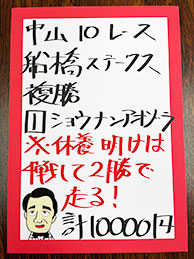 中山10レース
船橋ステークス
複勝
1ショウナンアオゾラ
※休養明けは
4戦して2勝で
走る!
計10000円